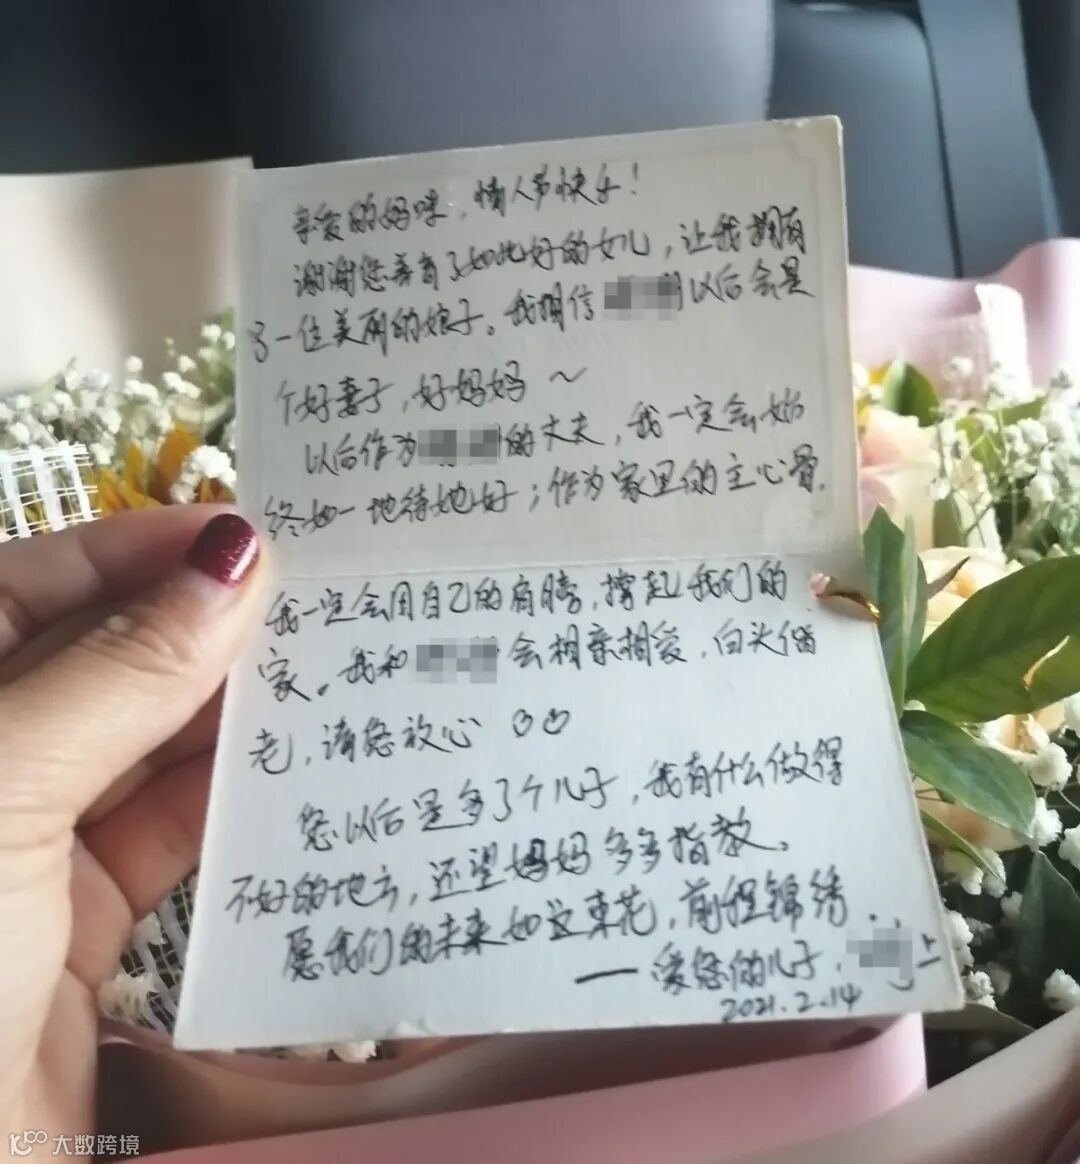 亲爱的妈咪，情人节快乐！
谢谢您养育了如此好的女儿，让我拥有
了一位美丽的娘子。我相信 以后会是
个好妻子，好妈妈～
以后作为 的丈夫，我一定会始
终如一地待她好；作为家里的主心骨，
我一定会用自己的肩膀，撑起我们的
家。我和 会相亲相爱，白头偕
老，请您放心
您以后是多了个儿子，我有什么做得
不好的地方，还望妈妈多多指教。
愿我们的未来如这束花，前程锦绣.
——爱您的儿子. 上
2021.2.14
大数跨境